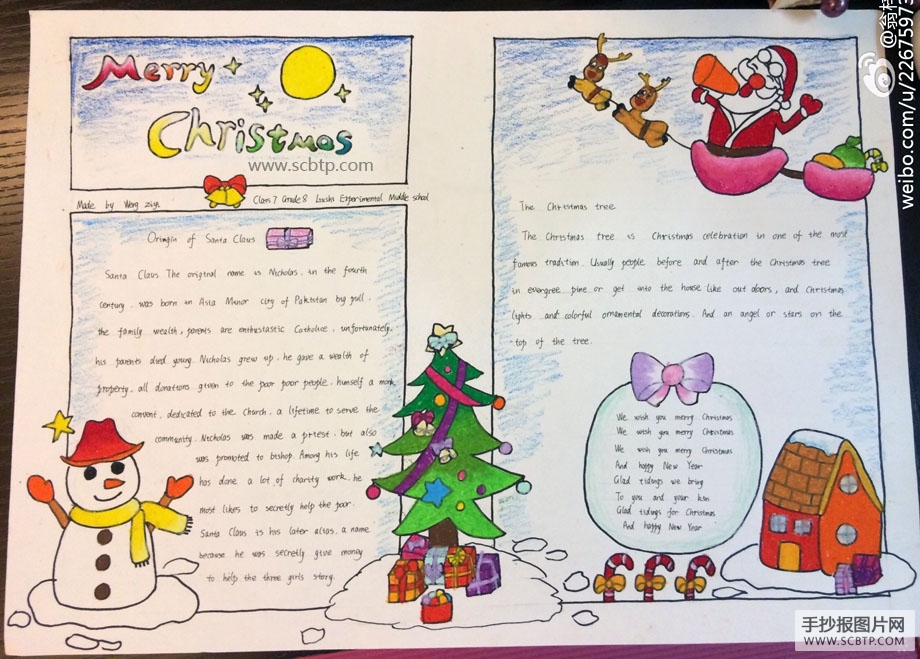 Merry
Christmas
www.scbtp.com
Made by Weng
Class 7 Grade 8 Experimental Middle school
Orimgin of Santa Claus
Santa Claus The original name is Nicholas. in the fourth
century. was born in Asia Minor city of Pakistan by pull.
the family wealth, parents are enthustastic Catholice, unfortunately,
his parents died young. Nicholas grew up. he gave a wealth of
property. all donations given to the poor poor people. himself a monk
convent. dedicated to the Church. a lifetime to serve the
community. Nicholas was made a priest. but also
was promoted to bishop. Among his life
has done a lot of charity work. he
most likes to secretly help the poor.
Santa Claus is his later alias. a name
because he was secretly give money
to help the three girls story.
The Christmas tree
The Christmas tree is Christmas celebration in one of the most
famous tradition. Usually people before and after the Christmas tree
in evergree pine or get into the house like out doors, and Christmas
lights and colorful ornamental decorations. And an angel or stars on the
top of the tree.
We wish you merry Christmas
We wish you merry Christmas
We wish you merry Christmas
And happy New Year
Glad tidings we bring
To you and your kin
Glad tidings for Christmas
And happy New Year
weibo.com/u/22675973
手抄报图片网
WWW.SCBTP.COM